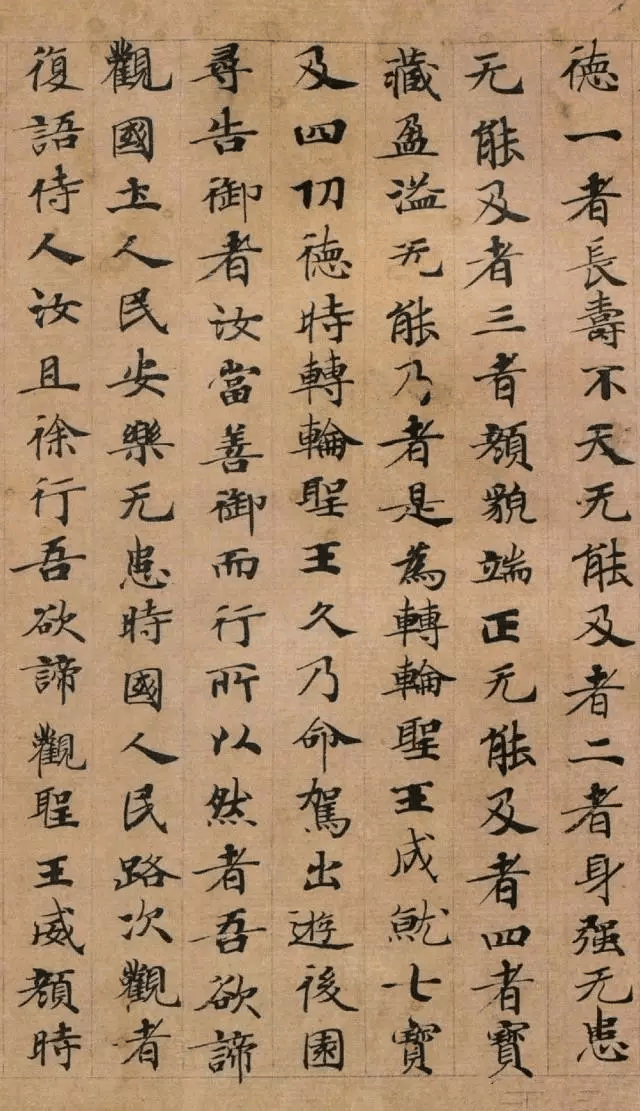 徳一者長壽不夭无能及者二者身强无患
无能及者三者顏貌端正无能及者四者寶
藏盈溢无能及者是為轉輪聖王成就七寶
及四功徳時轉輪聖王久乃命駕出遊後園
尋告御者汝當善御而行所以然者吾欲諦
觀國土人民安樂无患時國人民路次觀者
復語侍人汝且徐行吾欲諦觀聖王威顏時